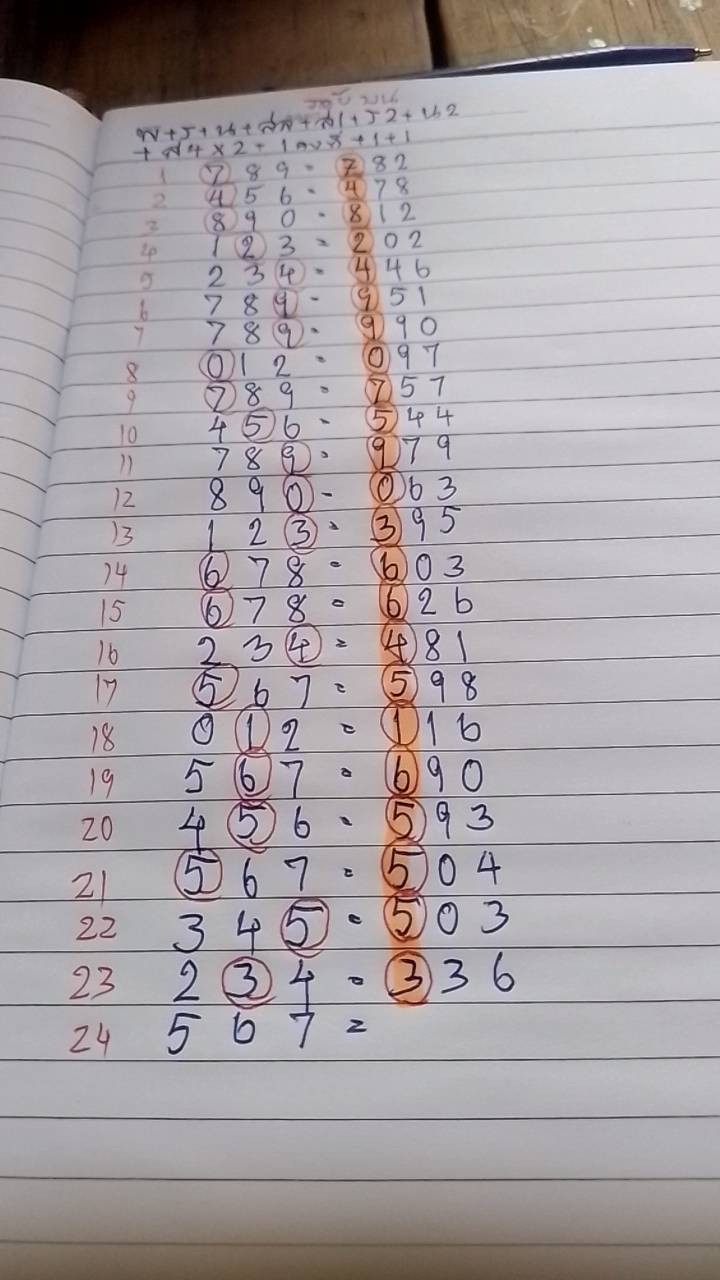 พ+ร+น+สส+ส1+ร2+น2
+ส4×2+1คงที่+1+1
1 789=782
2 456=478
3 890=812
4 123=202
5 234=446
6 789=951
7 789=990
8 012=097
9 789=757
10 456=544
11 789=979
12 890=063
13 123=395
14 678=603
15 678=626
16 234=481
17 567=598
18 012=116
19 567=690
20 456=593
21 567=504
22 345=503
23 234=336
24 567=